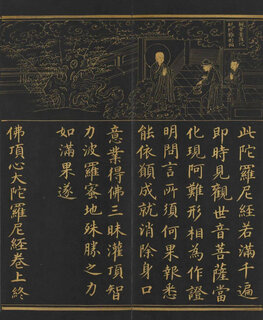 此陀羅尼經若滿千遍
即時見觀世音菩薩當
化現阿難形相為作證
明問言所須何果報悉
能依願成就消除身口
意業得佛三昧灌頂智
力波羅蜜地殊勝之力
如滿果遂
佛頂心大陀羅尼經卷上終